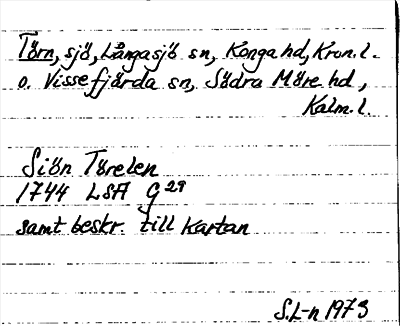 Törn, sjö, Långasjö sn, Konga hd, Kron. l.
o. Vissefjärda sn, Södra Möre hd,
Kalm. l.
Siön Törelen
1744 LSA G 29
samt beskr. till kartan
S. L-n 1973